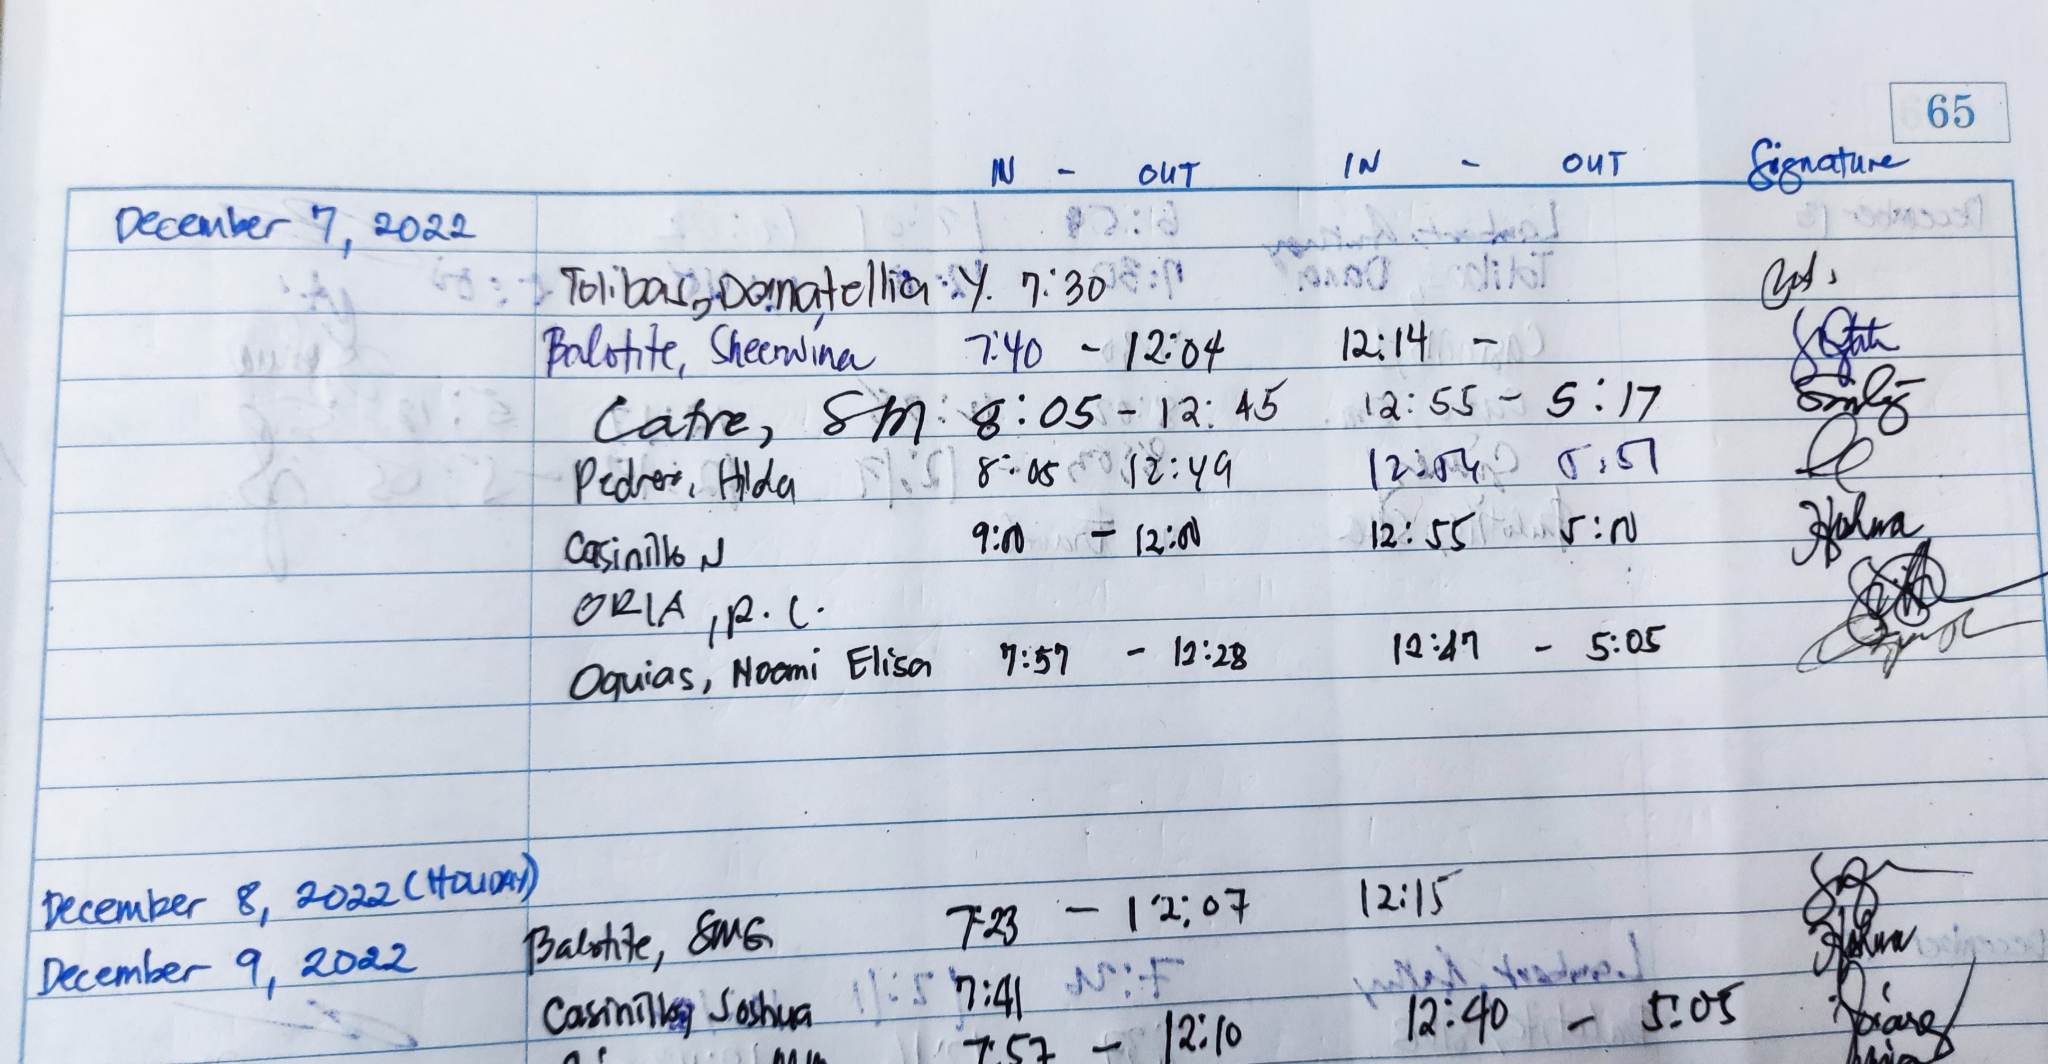 65
IN - OUT IN - OUT Signature
December 7, 2022
Tolibas, Donatellia Y. 7:30
Balotite, Sheerwina 7:40 - 12:04 12:14 -
Catre, SM 8:05 - 12:45 12:55 - 5:17
Hilda 8:05 12:49 12:54 5:51
Casinillo J 9:00 - 12:00 12:55 5:00
ORIA, R.C.
Oquias, Noemi Elisa 7:57 - 12:28 12:47 - 5:05
December 8, 2022 (HOLIDAY)
Balotite, SMG 7:23 - 12:07 12:15
December 9, 2022
Casinillo, Joshua 7:41
7:57 - 12:10 12:40 - 5:05